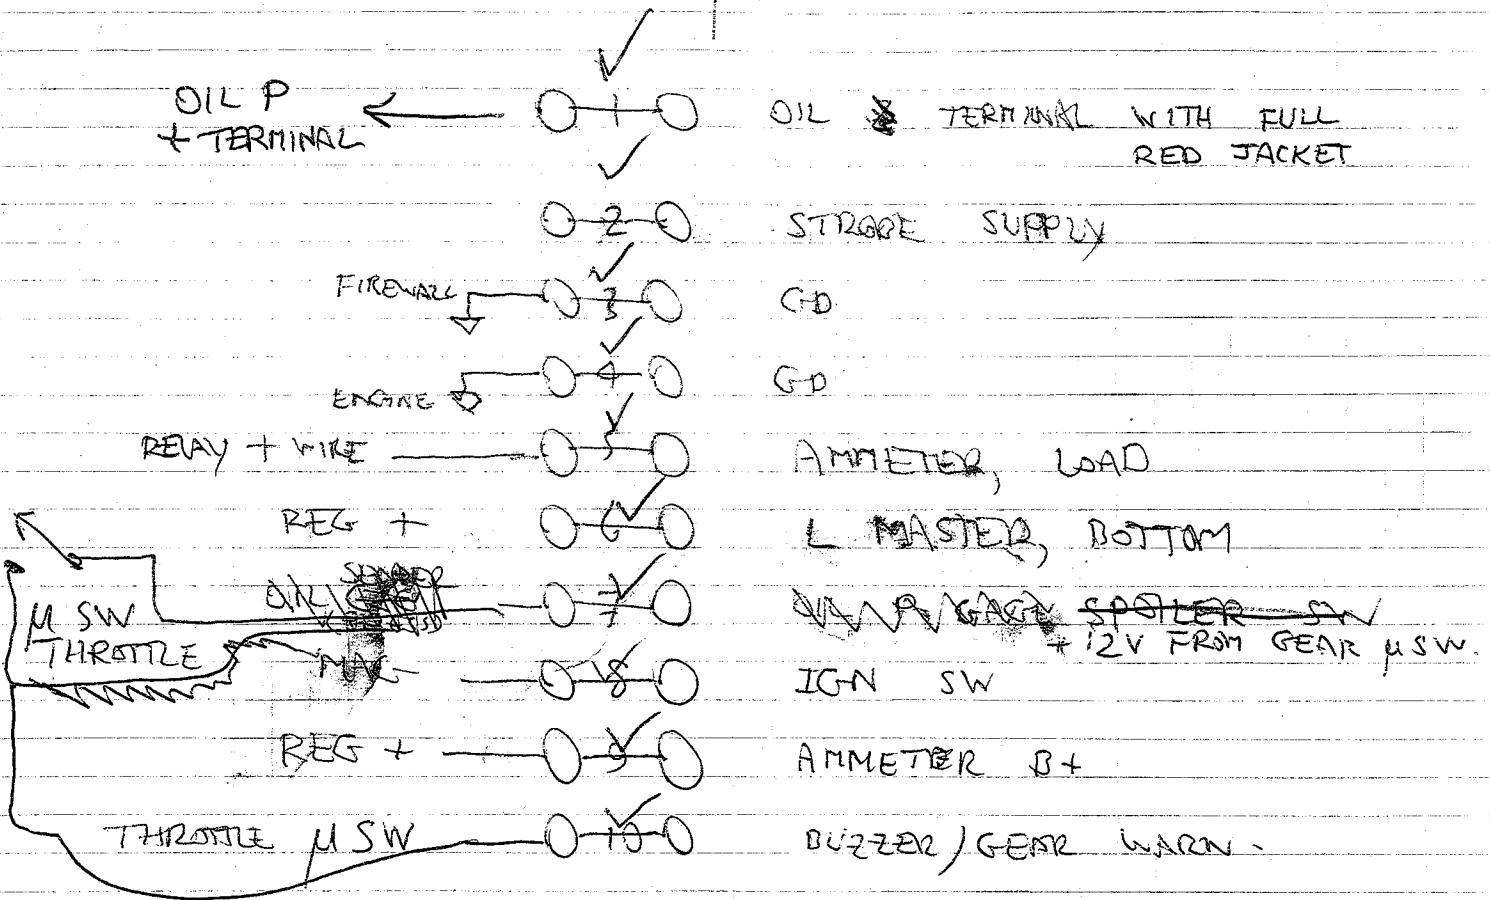 OIL P
+ TERMINAL
1
OIL TERMINAL WITH FULL
RED JACKET
2
STROBE SUPPLY
FIREWALL
3
GD
ENGINE
4
GD
RELAY + WIRE
5
AMMETER, LOAD
REG +
6
L MASTER, BOTTOM
SENDER
OIL
7
OIL P GAGE SPOILER SW
+ 12V FROM GEAR μSW.
μ SW
THROTTLE
MAG
8
IGN SW
REG +
9
AMMETER B+
THROTTLE μ SW
10
BUZZER/GEAR WARN.